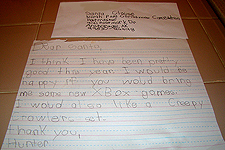 Santa Clause
North Pole
Dear Santa,
I think I have been pretty
good this year. I would be
happy if you woud bring
me some new XBox games.
I woud also like a Creepy
Crawlers set.
Thank you,
Hunter